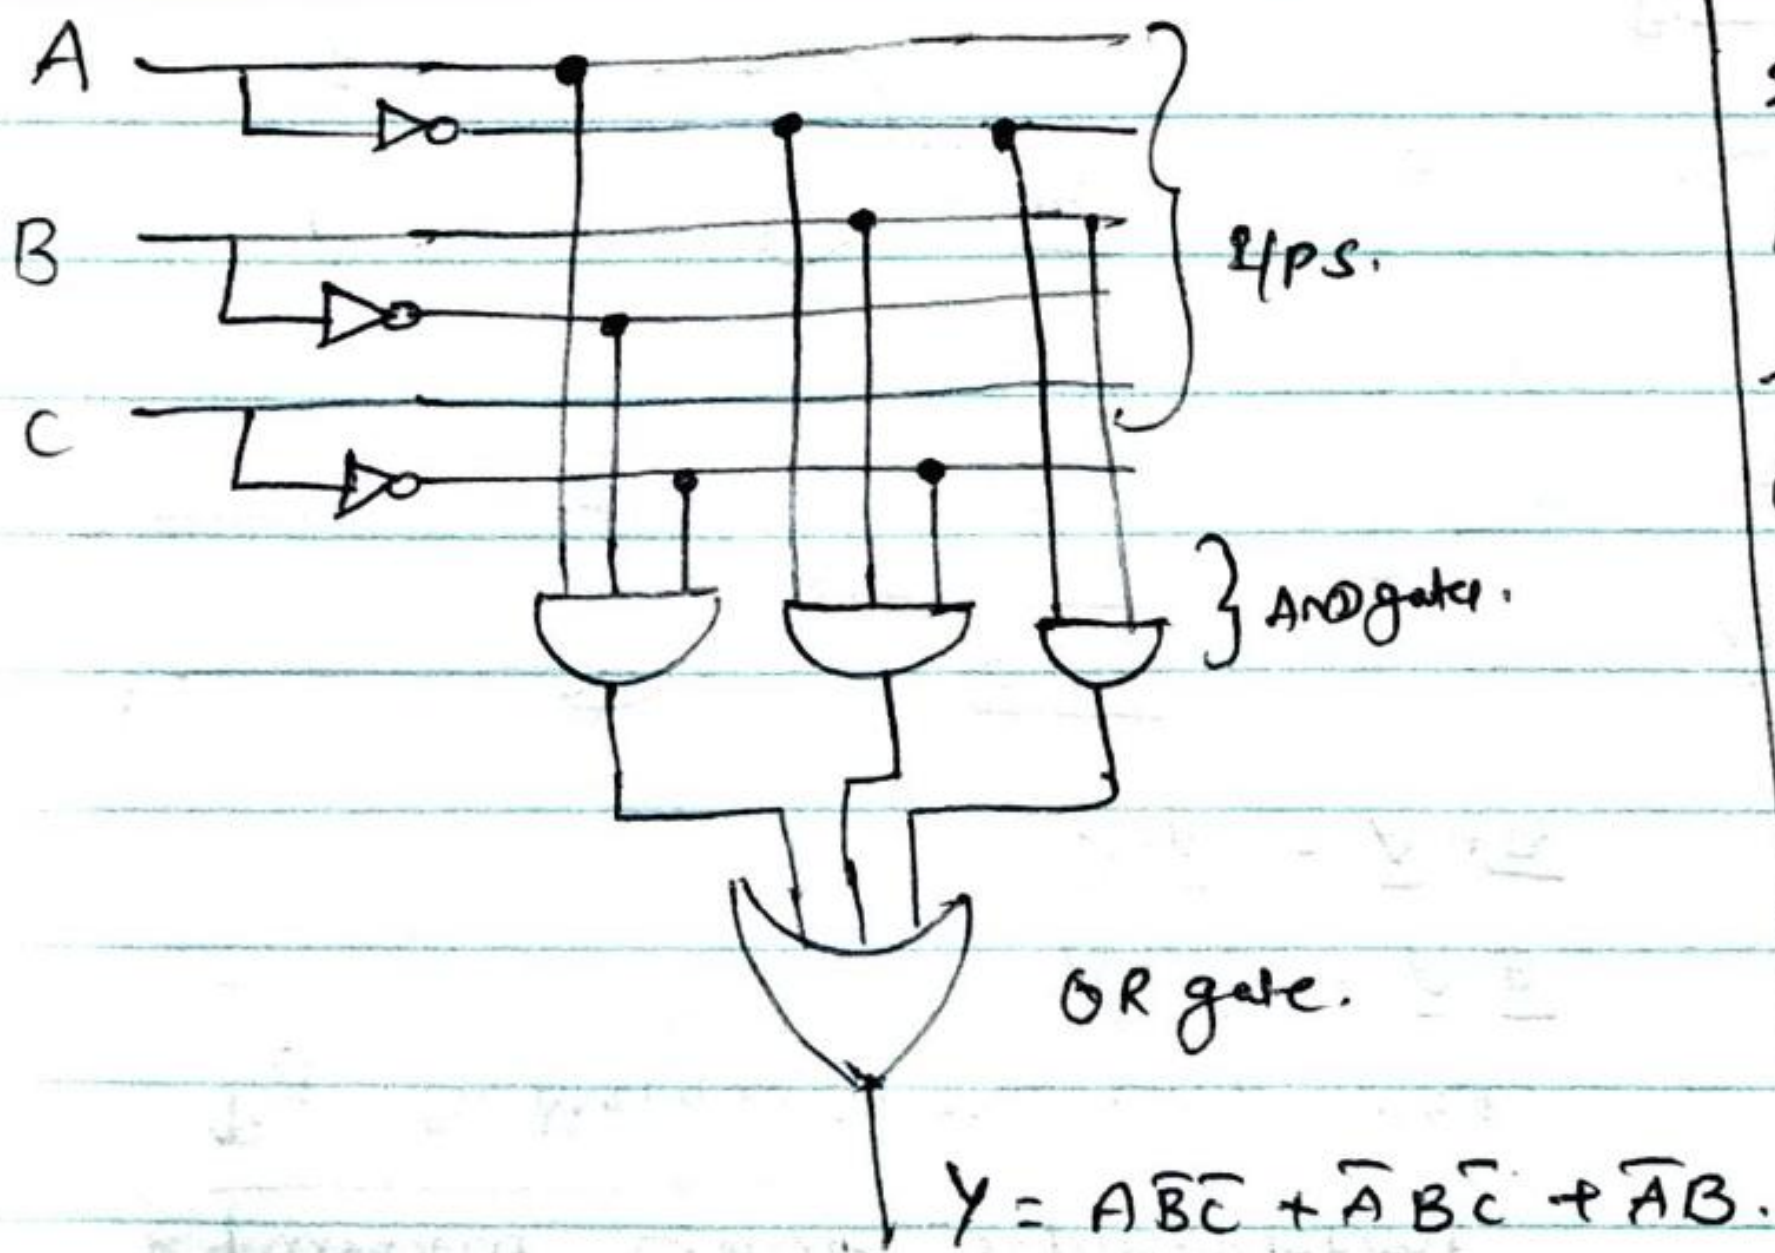 A
B
I/ps.
C
AND gate.
OR gate.
Y = AB̅C̅ + A̅BC̅ + A̅B.